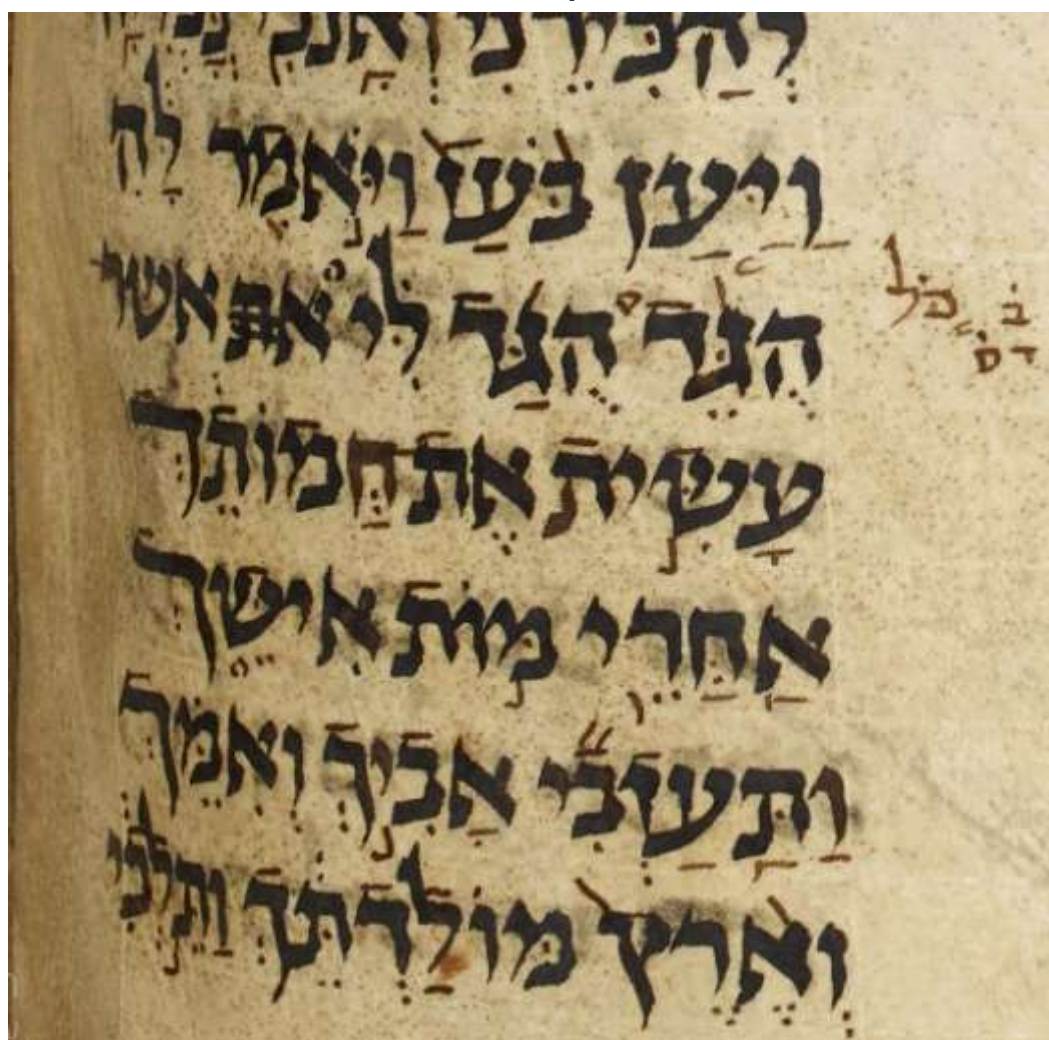 לְהַכִּירֵנִי וְאָנֹכִי
וַיַּעַן בֹּעַז וַיֹּאמֶר לָהּ
הֻגֵּד הֻגַּד לִי אשר
עָשִׂית אֶת חֲמוֹתֵךְ
אַחֲרֵי מוֹת אִישֵׁךְ
וַתַּעַזְבִי אָבִיךְ וְאִמֵּךְ
וְאֶרֶץ מוֹלַדְתֵּךְ וַתֵּלְכִי
ב כל
דס